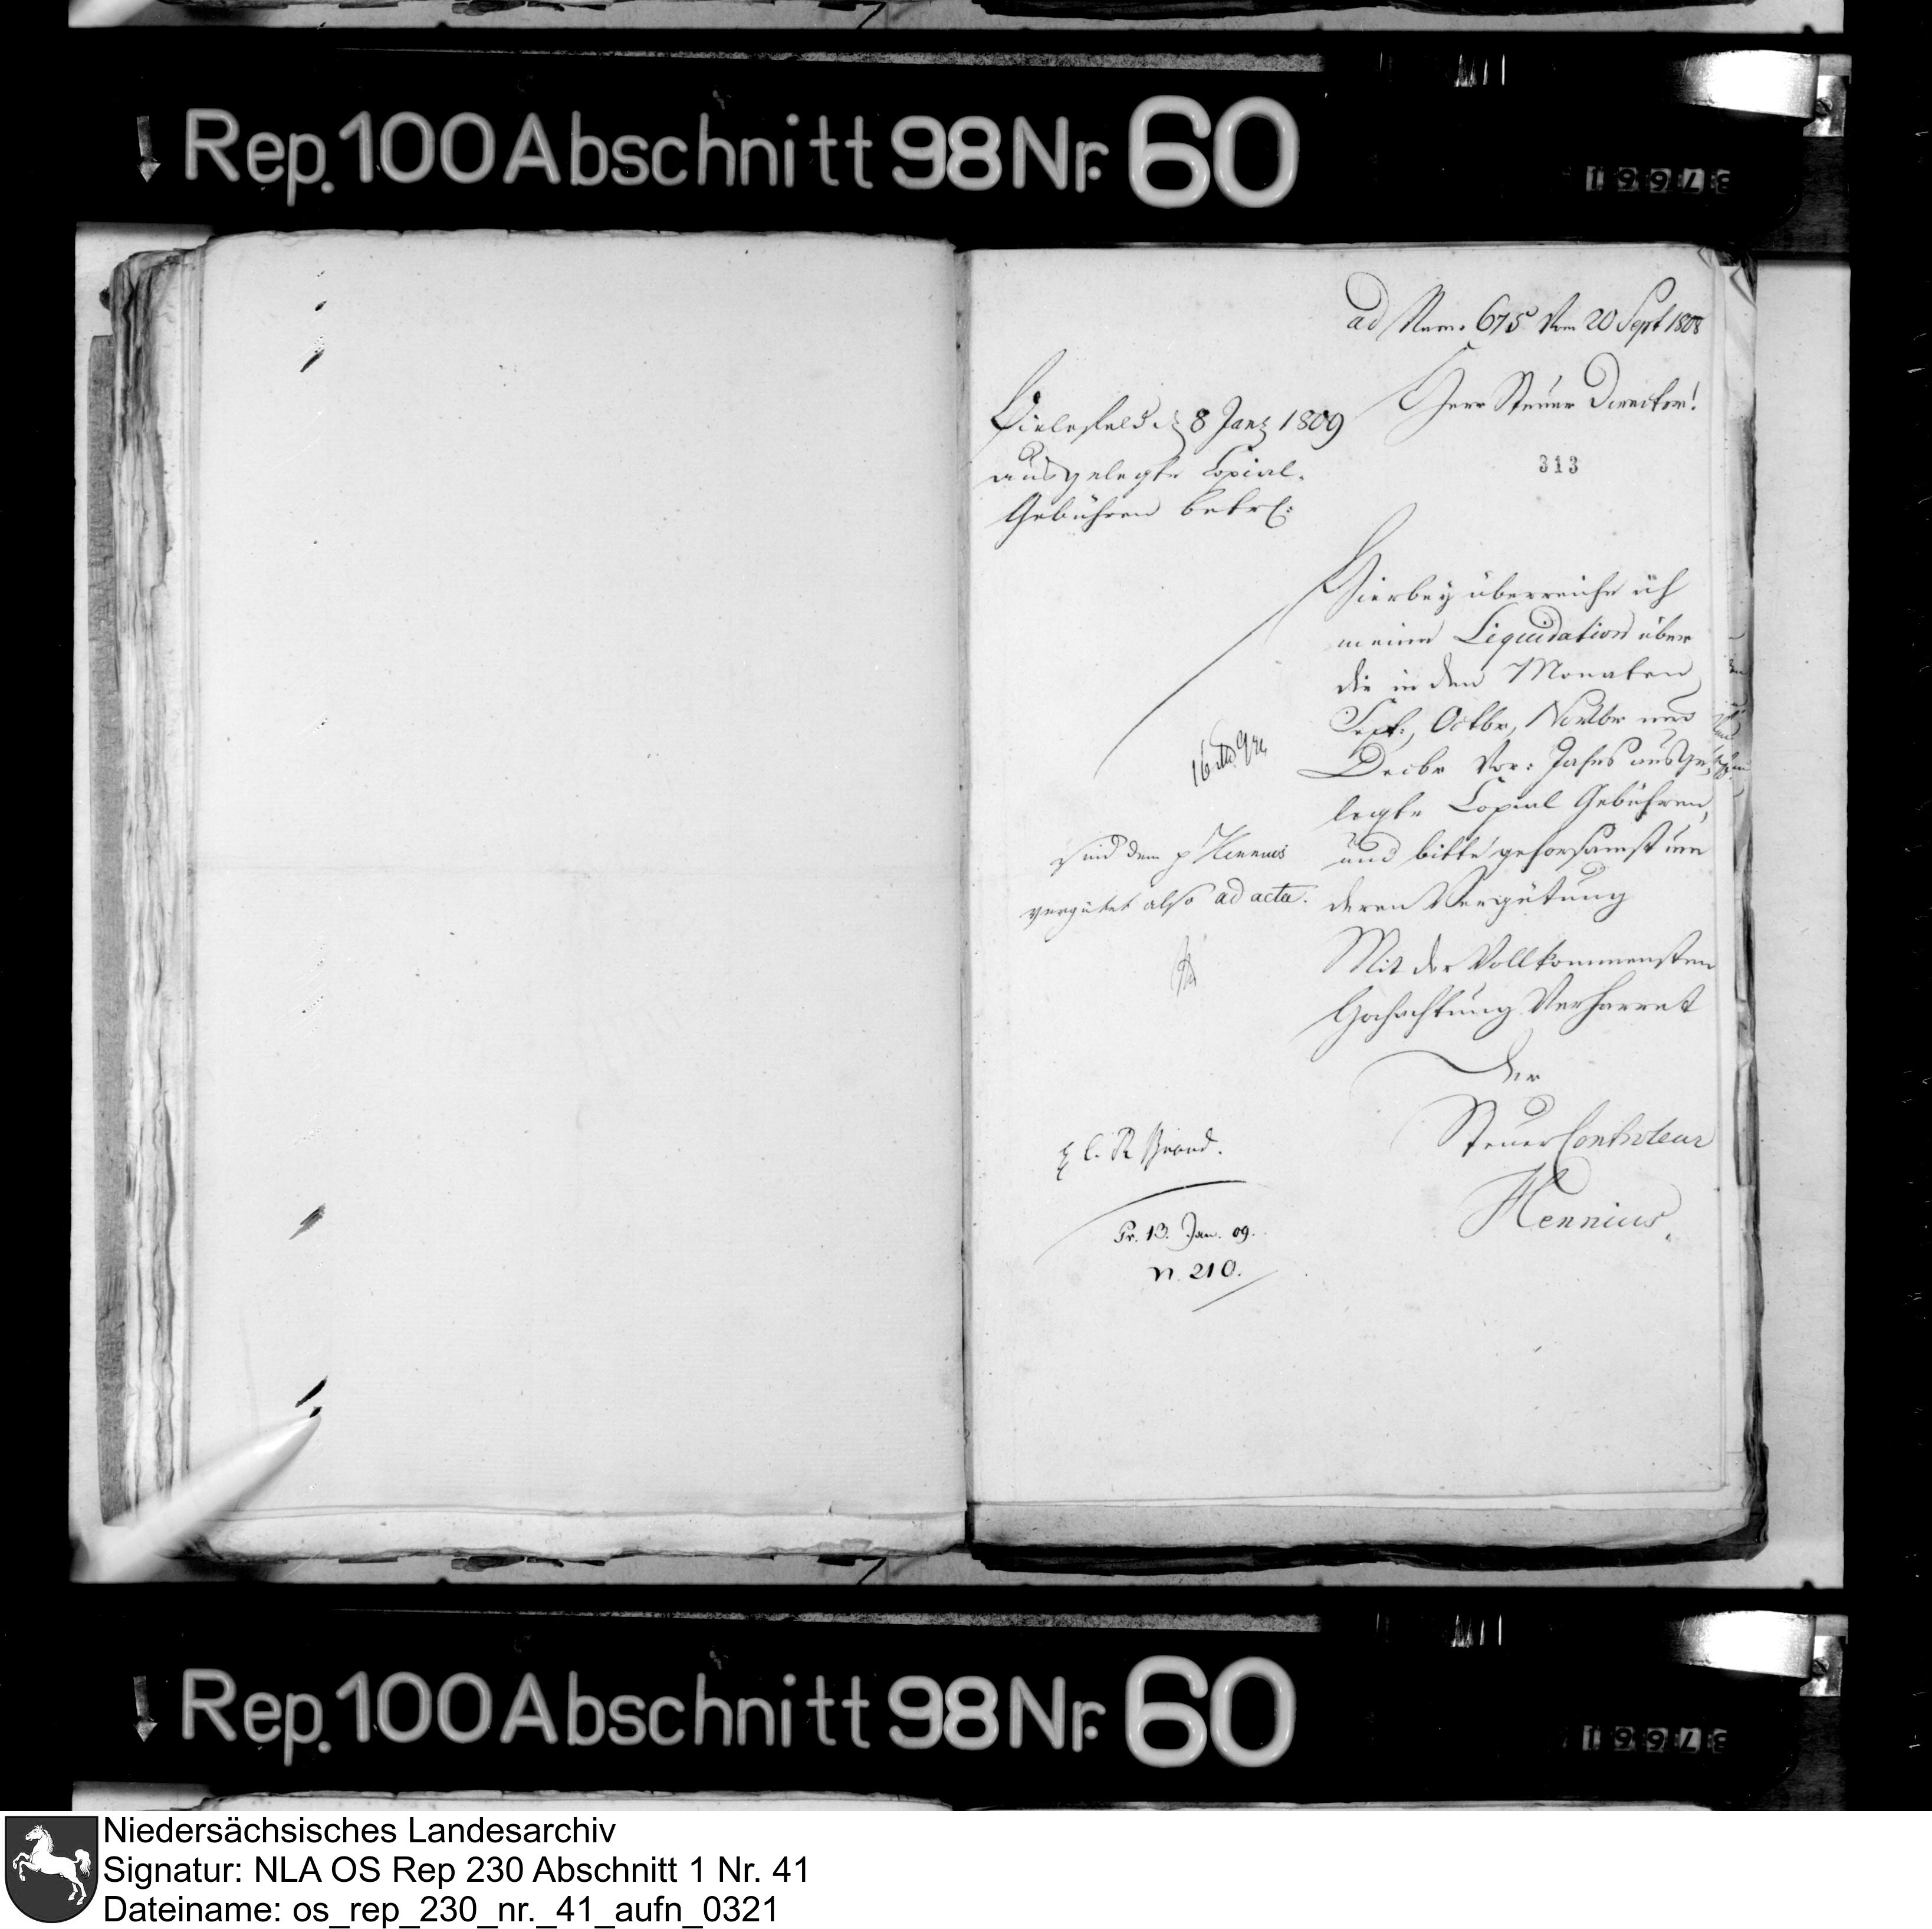 Rep. 100 Abschnitt 98 Nr. 60
ad Num. 675 vom 20 Sept 1808
Herr Steuer Director!
313
Bielefeld d. 8 Jan. 1809
ausgelegte Copial-
Gebühren betr:
Hierbey überreiche ich
meine Liquidation über
die in den Monaten
Sept., Octbr, Novbr und
Decbr vor: Jahrs ausge,
legte Copial Gebühren,
und bitte gehorsamst um
deren Vergütung
Mit der Vollkommensten
Hochachtung Verharret
der
Steuer Controleur
Hennius.
sind dem p Hennius
vergütet also ad acta.
C. R.
Pr. 13. Jan. 09.
n. 210.
Rep. 100 Abschnitt 98 Nr. 60
Niedersächsisches Landesarchiv
Signatur: NLA OS Rep 230 Abschnitt 1 Nr. 41
Dateiname: os_rep_230_nr._41_aufn_0321